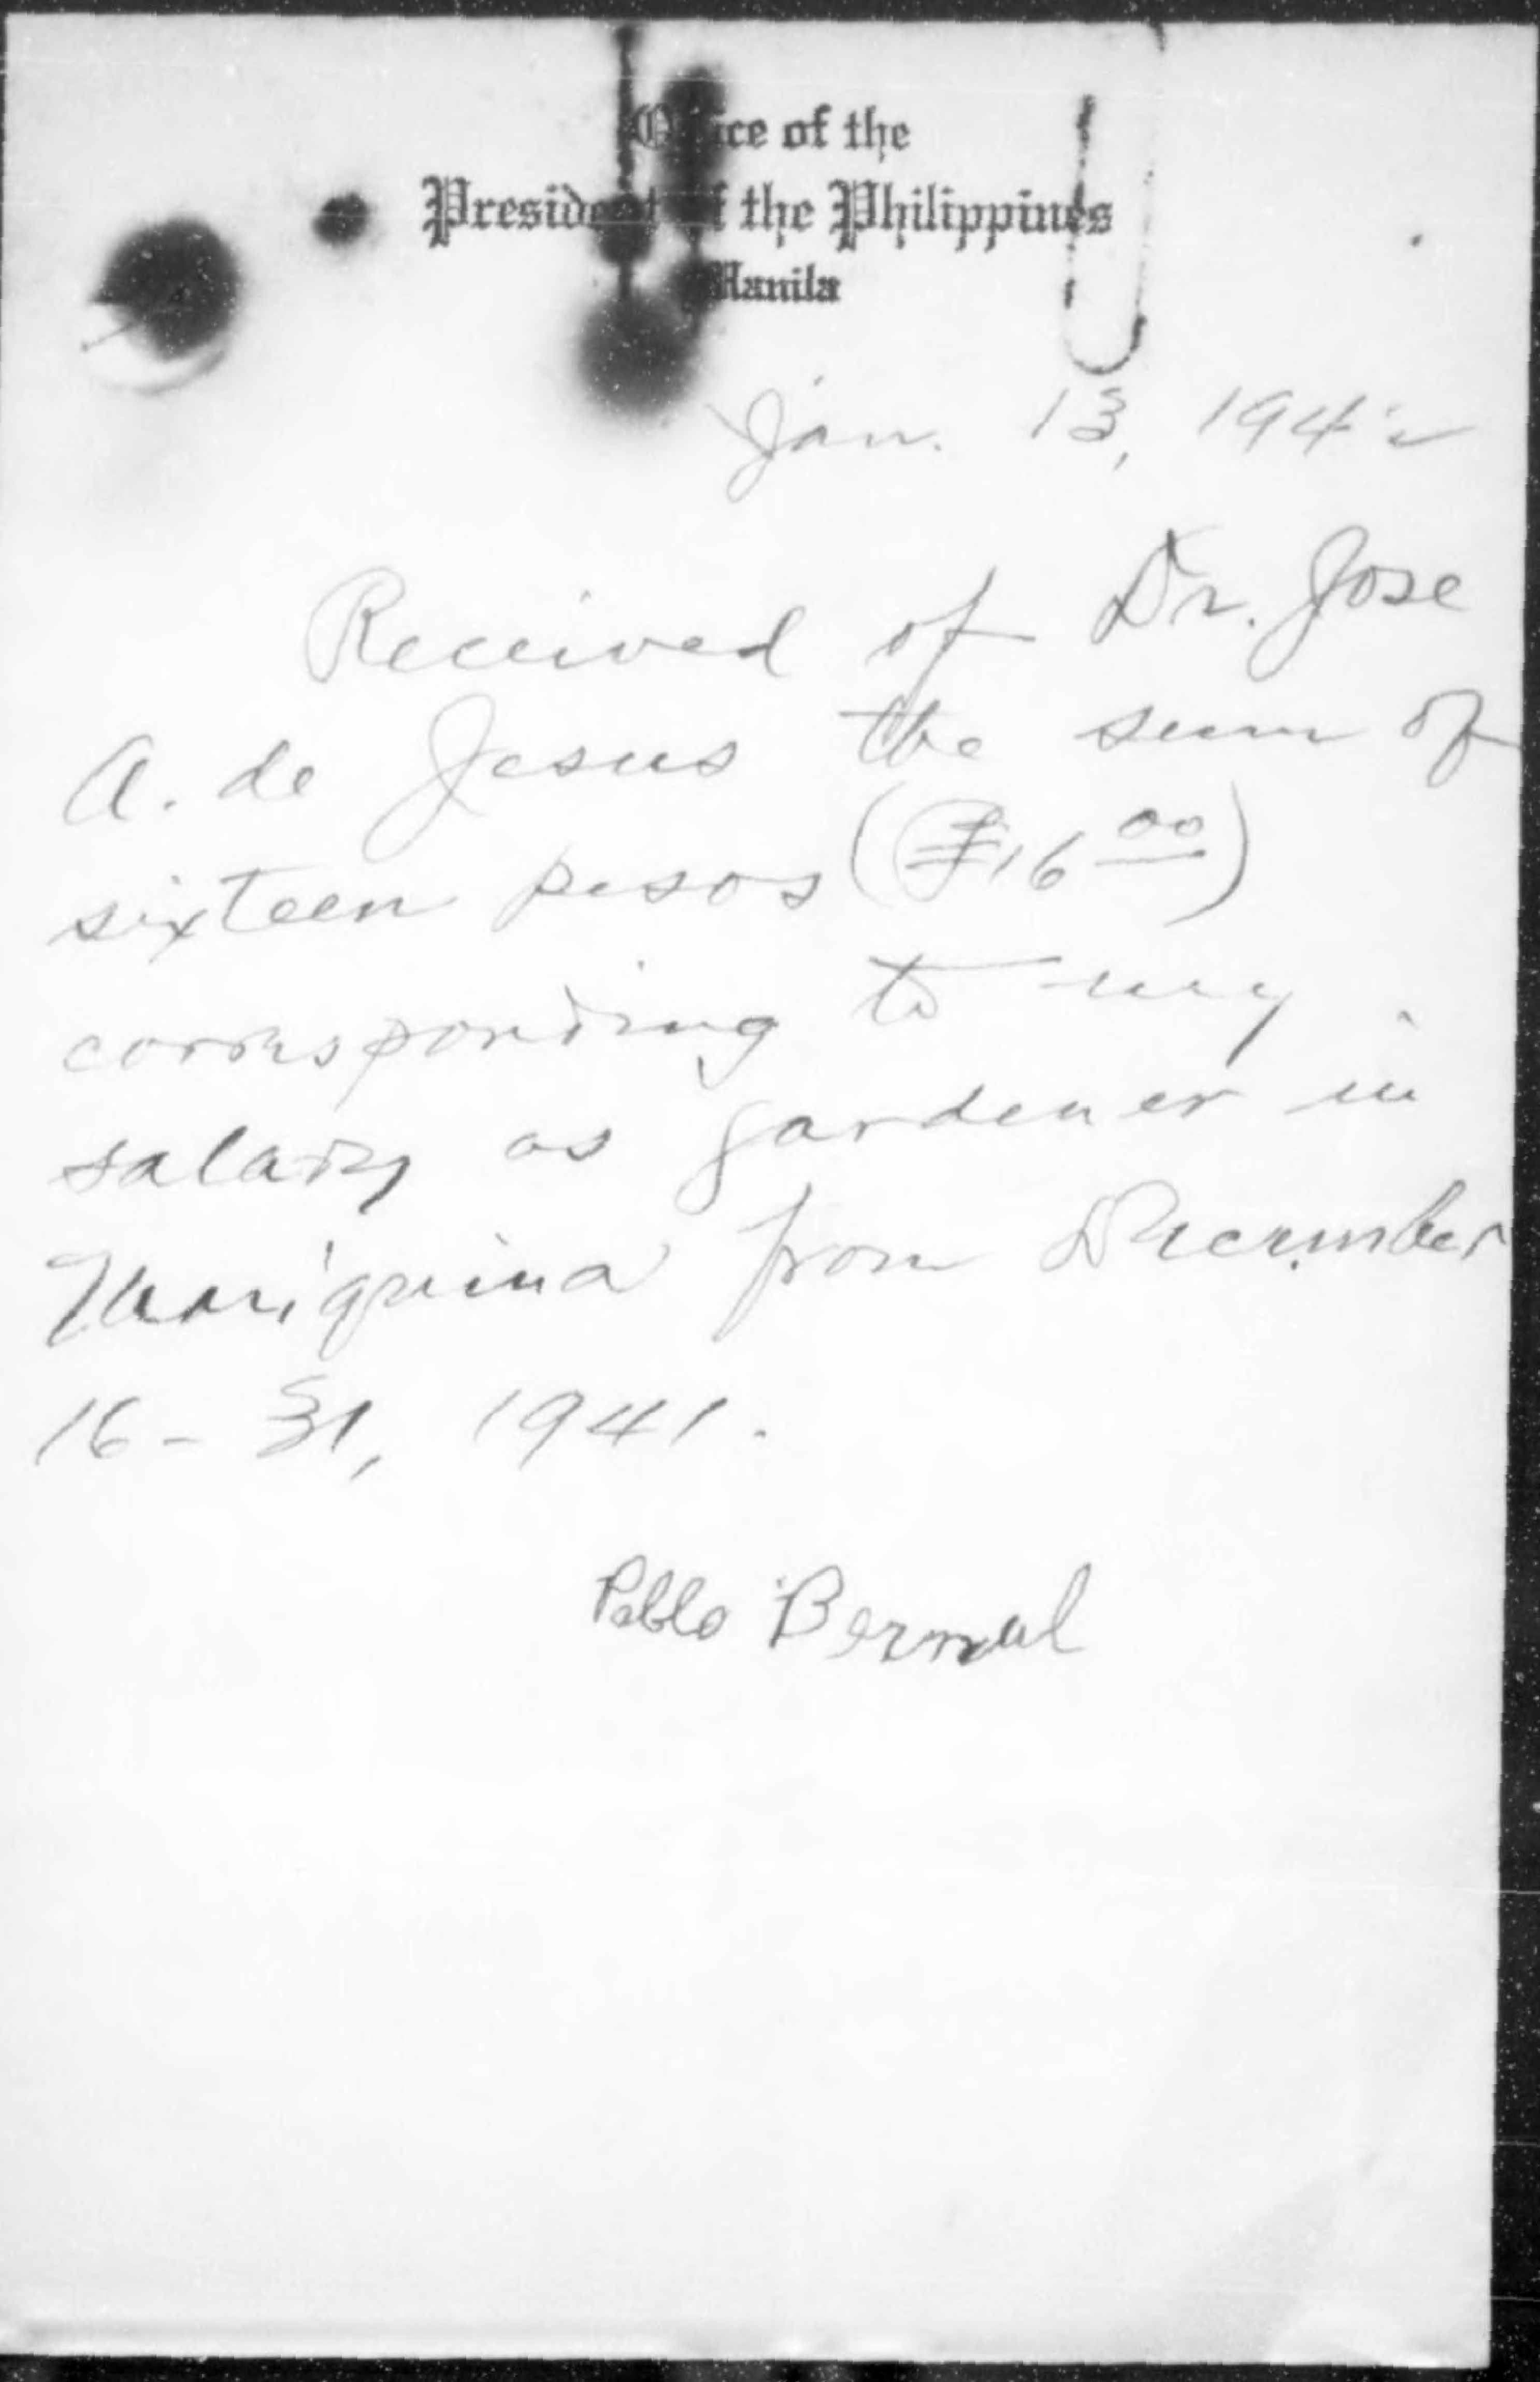 Office of the
President of the Philippines
Manila
Jan. 13, 1942
Received of Dr. Jose
A. de Jesus the sum of
sixteen pesos (₱16 00)
corresponding to my
salary as gardener in
Mariquina from December
16 - 31, 1941.
Pablo Bernal